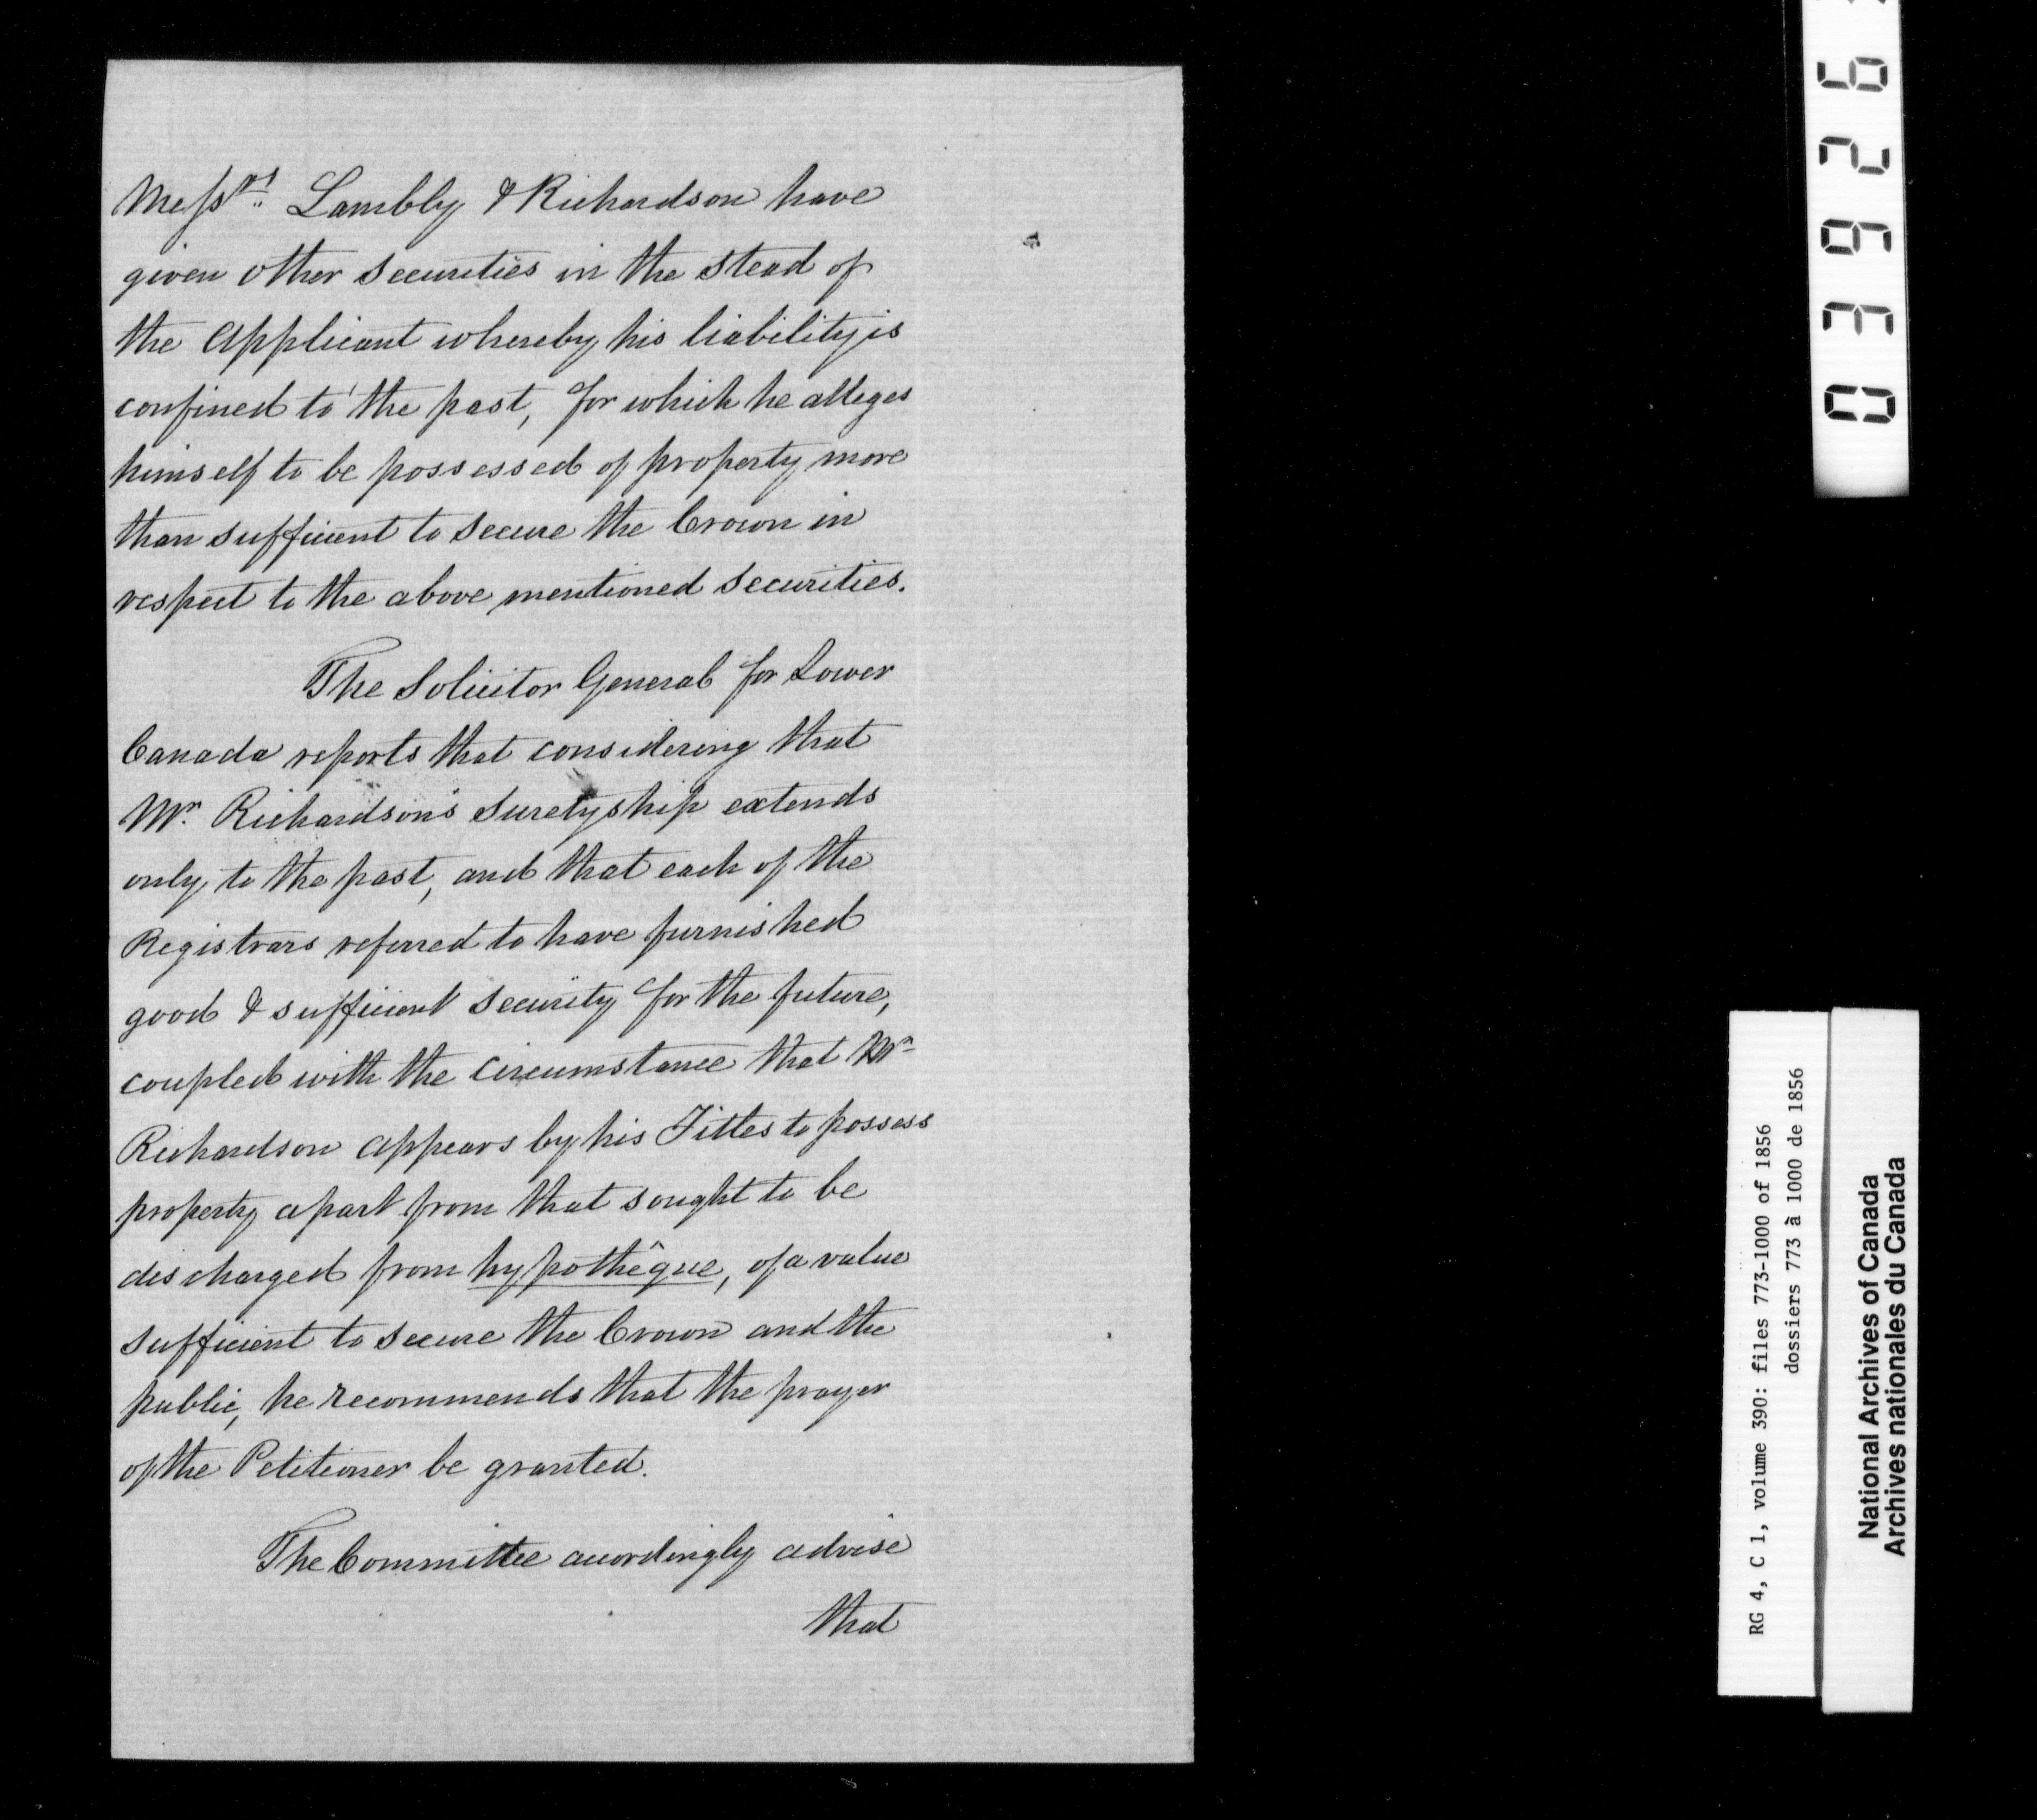 Messrs. Lambly & Richardson have
given other securities in the stead of
the Applicant whereby his liability is
confined to the past, for which he alleges
himself to be possessed of property more
than sufficient to secure the Crown in
respect to the above mentioned securities.
The Solicitor General for Lower
Canada reports that considering that
Mr. Richardson's Suretyship extends
only to the past, and that each of the
Registrars referred to have furnished
good & sufficient security for the future,
coupled with the circumstance that Mr
Richardson appears by his Titles to possess
property apart from that sought to be
discharged from hypothêque, of a value
sufficient to secure the Crown and the
public, he recommends that the prayer
of the Petitioner be granted.
The Committee accordingly advise
that
RG 4, C 1, volume 390: files 773-1000 of 1856
dossiers 773 à 1000 de 1856
National Archives of Canada
Archives nationales du Canada